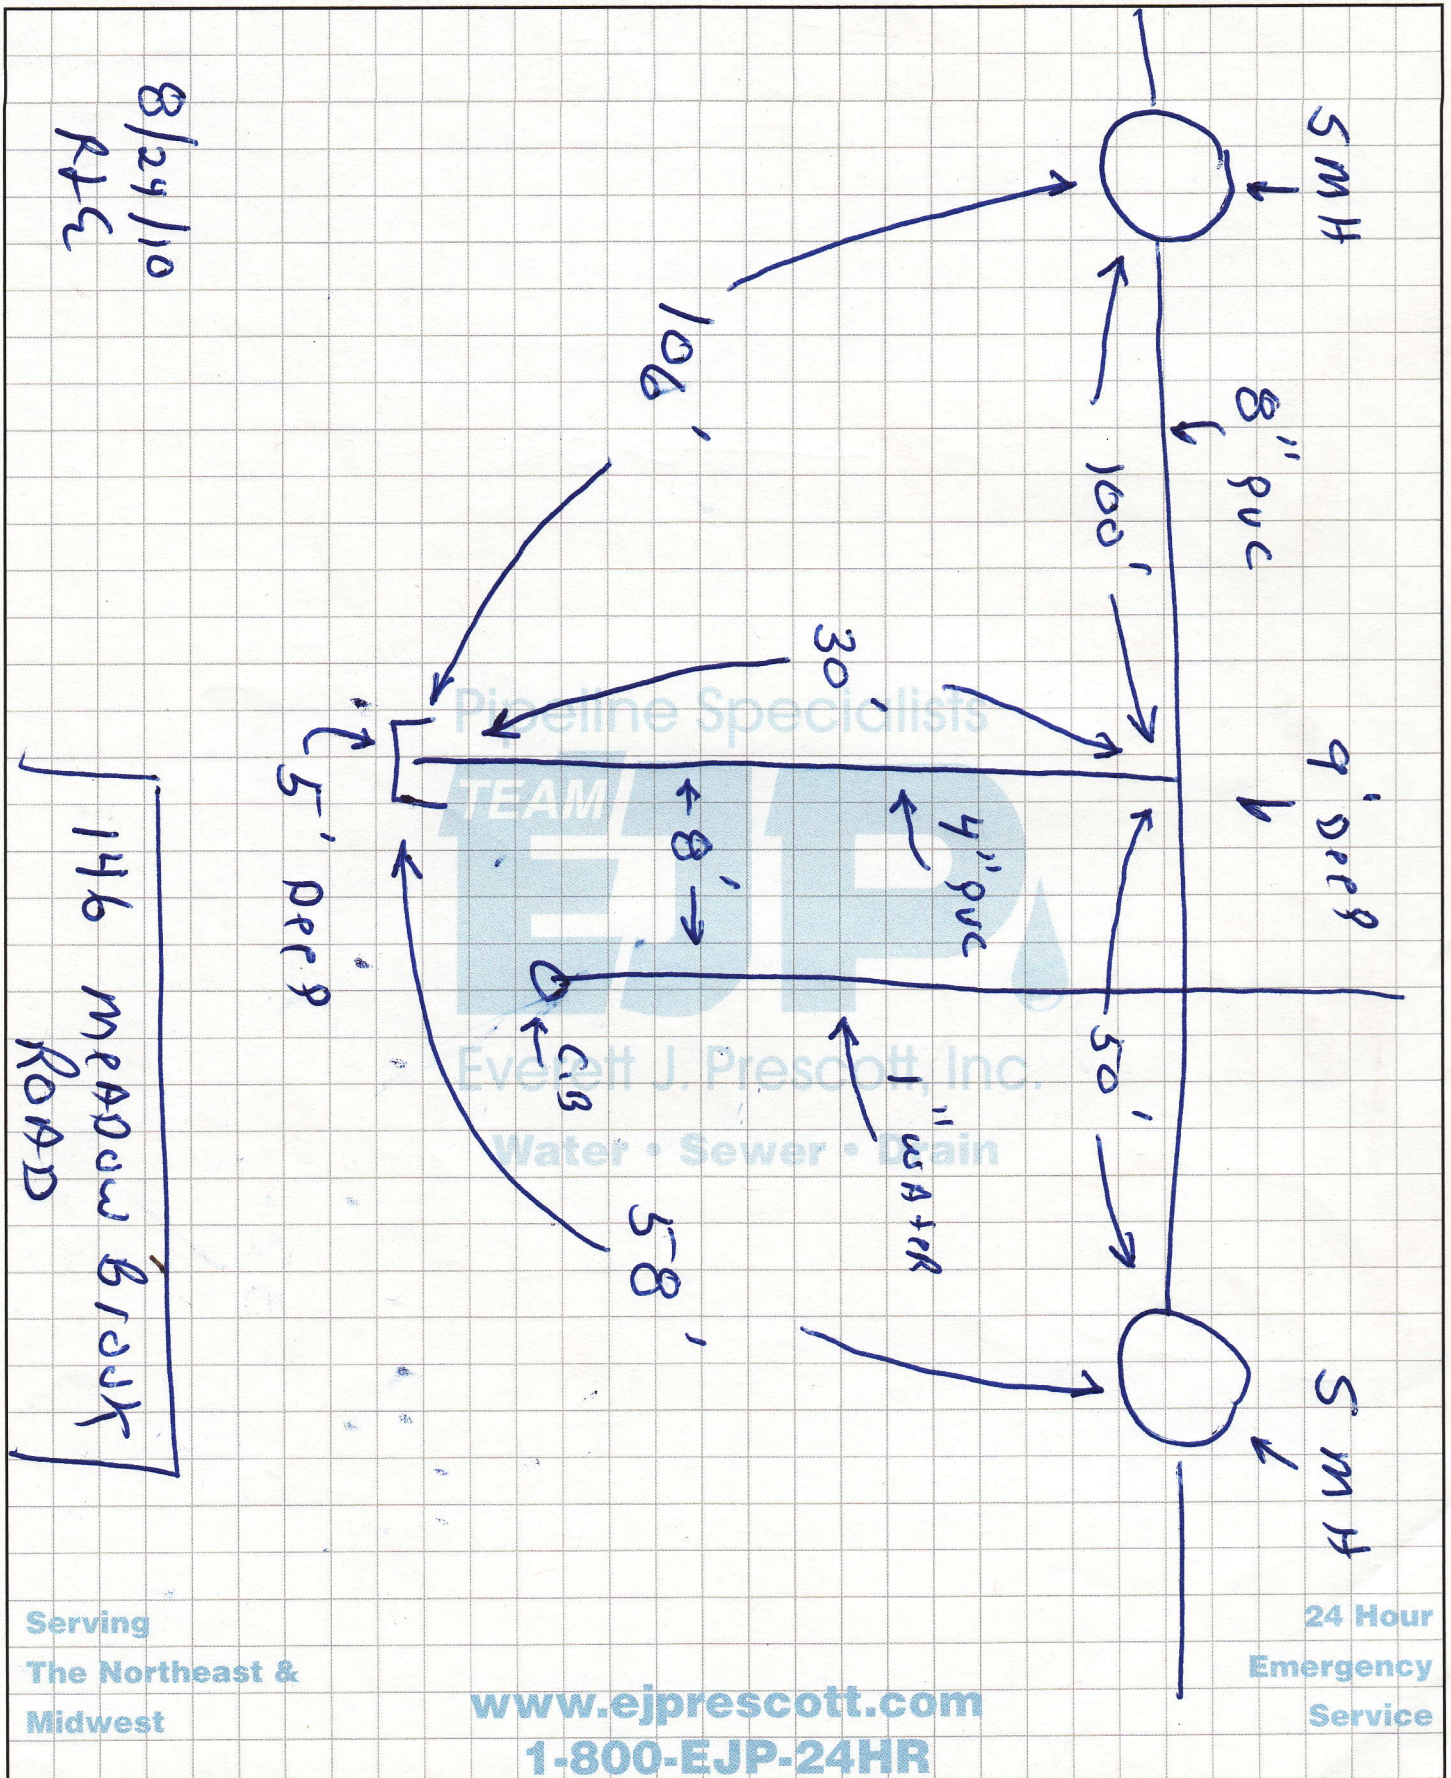 SMH
SMH
9' Deep
8" pvc
100'
50'
30'
4" pvc
1" WAteR
8'
106'
58'
C.B
5' Deep
146 MeADow Brook
ROAD
8/24/10
Pipeline Specialists
TEAM
EJP
Everett J. Prescott, Inc.
Water • Sewer • Drain
Serving
The Northeast &
Midwest
www.ejprescott.com
1-800-EJP-24HR
24 Hour
Emergency
Service